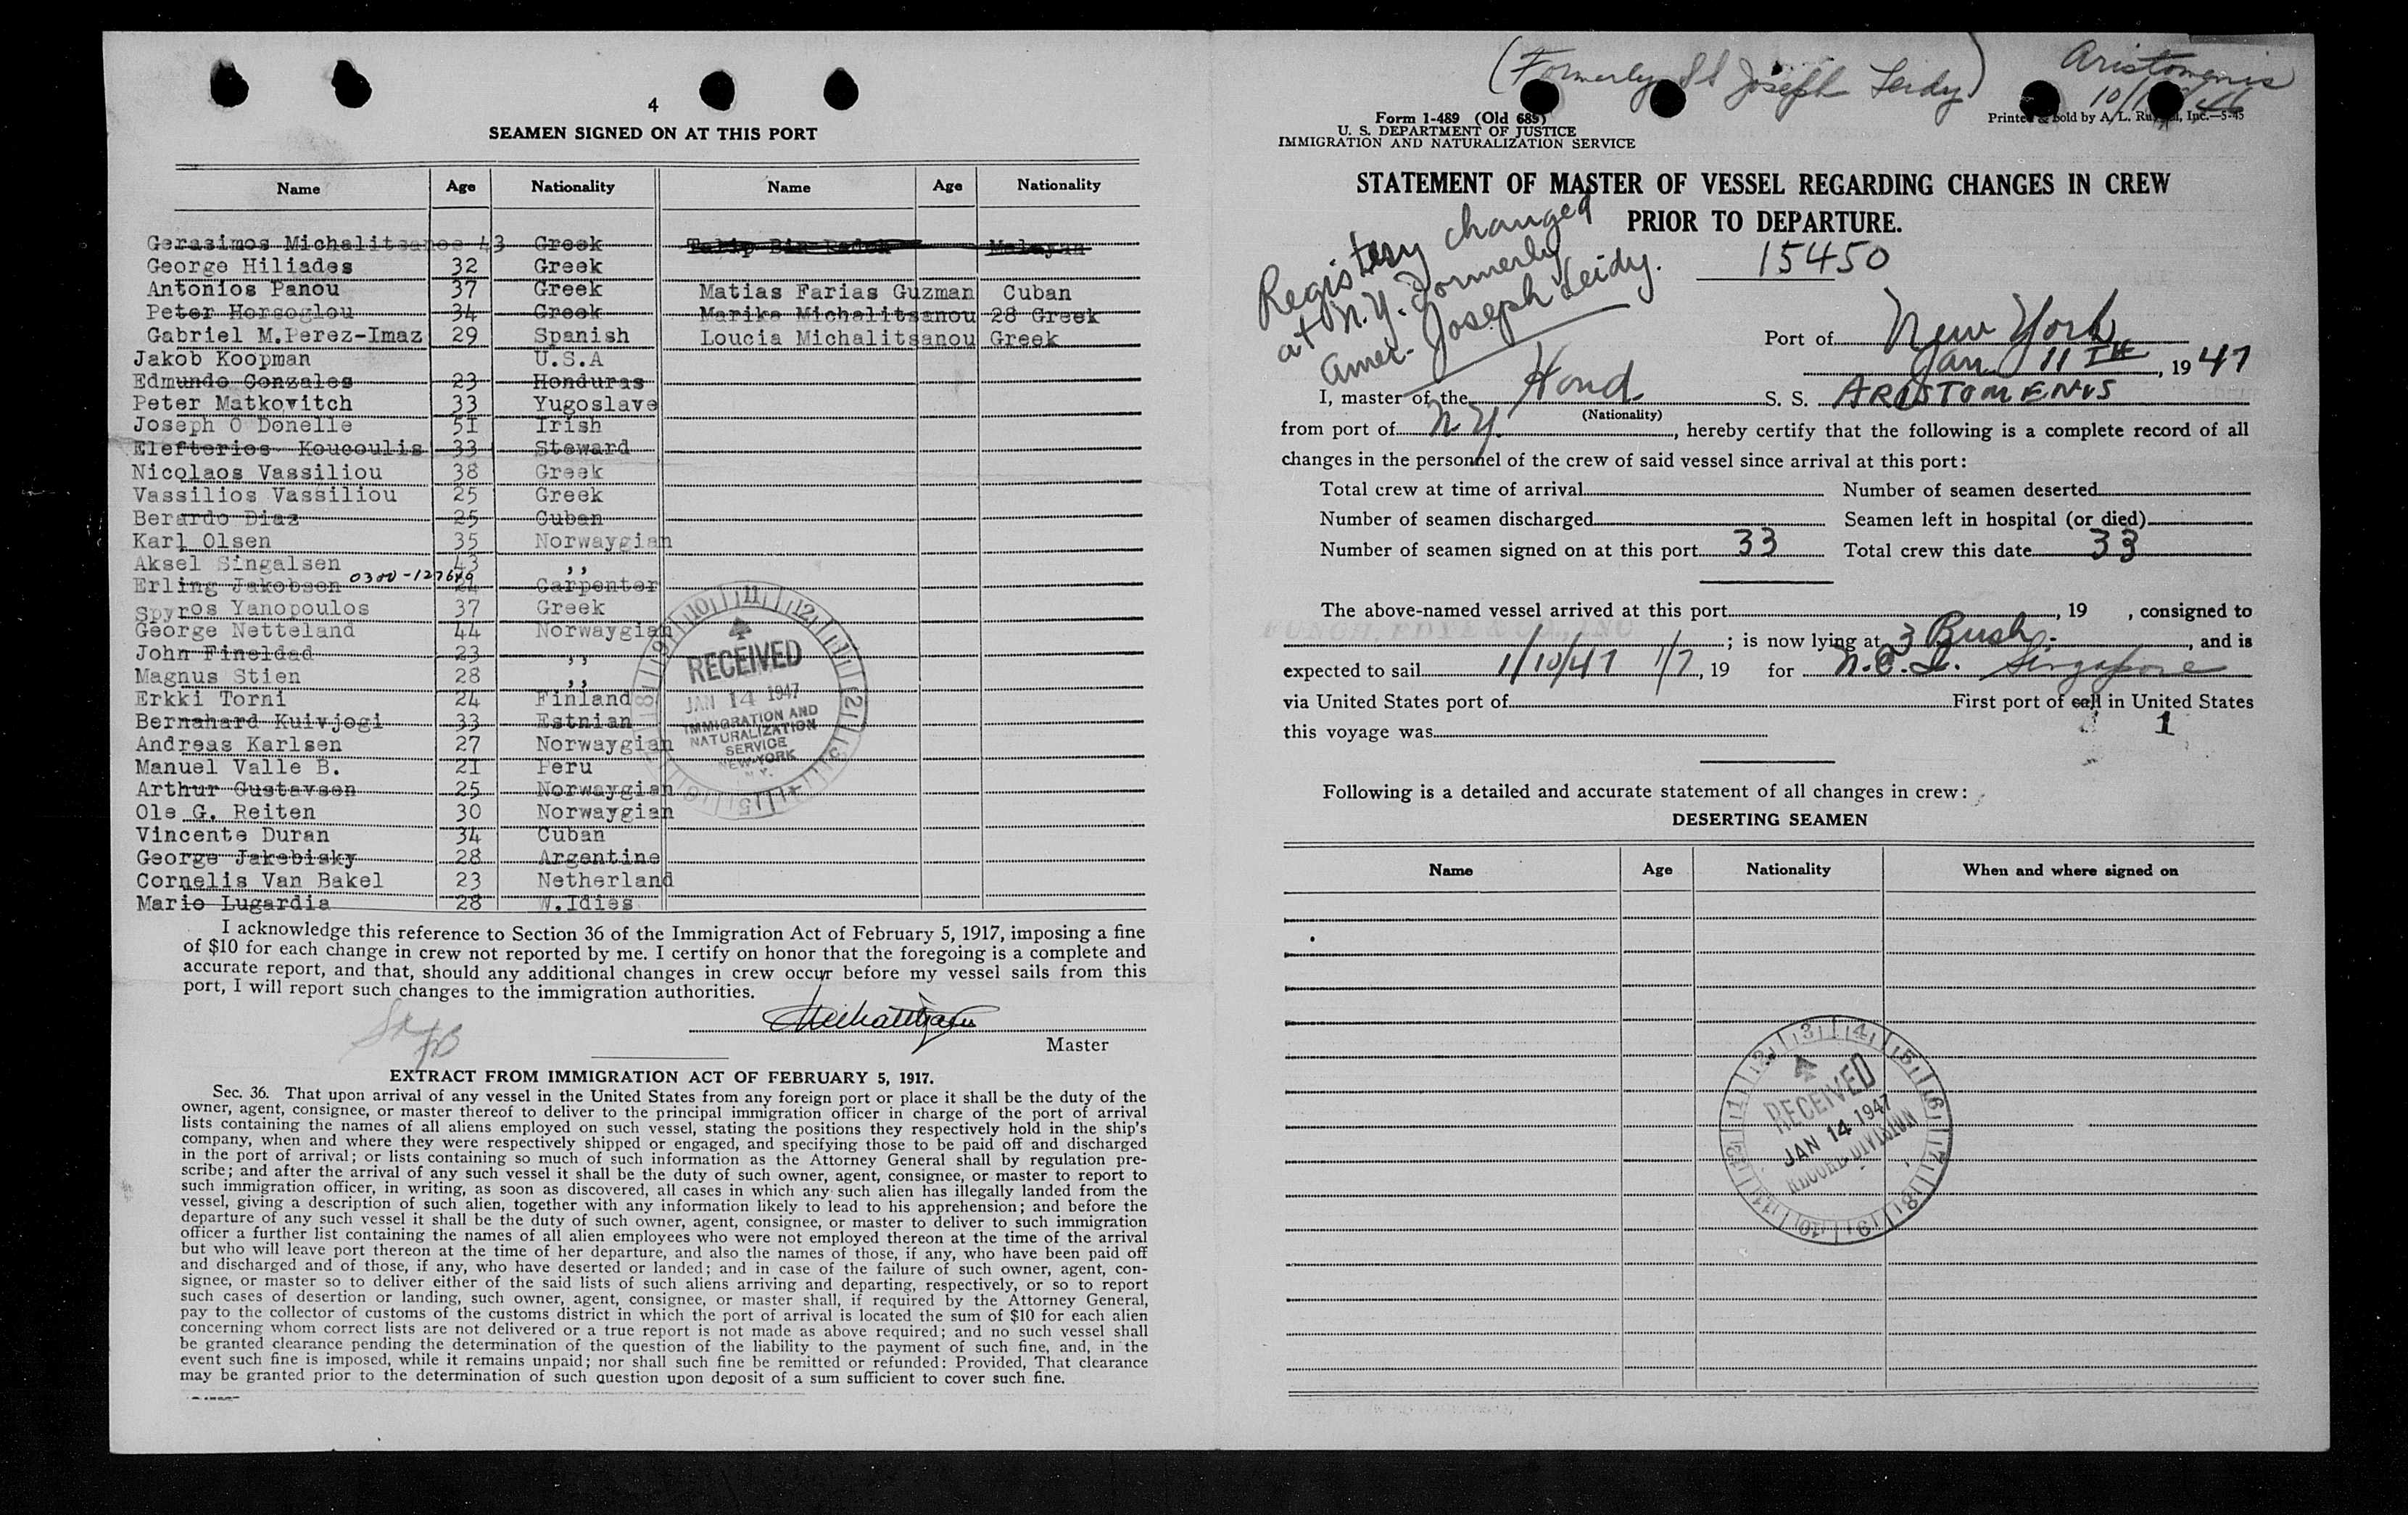 4
SEAMEN SIGNED ON AT THIS PORT
Name Age Nationality Name Age Nationality
Gerasimos Michalitsanos 43 Greek
George Hiliades 32 Greek
Antonios Panou 37 Greek Matias Farias Guzman Cuban
Peter Horsoglou 34 Greek Marika Michalitsanou 28 Greek
Gabriel M.Perez-Imaz 29 Spanish Loucia Michalitsanou Greek
Jakob Koopman U.S.A
Edmundo Gonzales 23 Honduras
Peter Matkovitch 33 Yugoslave
Joseph O Donelle 51 Irish
Elefterios Koucoulis 33 Steward
Nicolaos Vassiliou 38 Greek
Vassilios Vassiliou 25 Greek
Berardo Diaz 25 Cuban
Karl Olsen 35 Norwaygian
Aksel Singalsen 43 ,,
Erling Jakobsen 0300-127649 24 Carpenter
Spyros Yanopoulos 37 Greek
George Netteland 44 Norwaygian
John Fineldad 23 ,,
Magnus Stien 28 ,,
Erkki Torni 24 Finland
Bernahard Kuivjogi 33 Estnian
Andreas Karlsen 27 Norwaygian
Manuel Valle B. 21 Peru
Arthur Gustavsen 25 Norwaygian
Ole G. Reiten 30 Norwaygian
Vincente Duran 34 Cuban
George Jakebisky 28 Argentine
Cornelis Van Bakel 23 Netherland
Mario Lugardia 28 W.Idies
RECEIVED
JAN 14 1947
IMMIGRATION AND
NATURALIZATION
SERVICE
NEW YORK
N.Y.
I acknowledge this reference to Section 36 of the Immigration Act of February 5, 1917, imposing a fine
of $10 for each change in crew not reported by me. I certify on honor that the foregoing is a complete and
accurate report, and that, should any additional changes in crew occur before my vessel sails from this
port, I will report such changes to the immigration authorities.
Master
EXTRACT FROM IMMIGRATION ACT OF FEBRUARY 5, 1917.
Sec. 36. That upon arrival of any vessel in the United States from any foreign port or place it shall be the duty of the
owner, agent, consignee, or master thereof to deliver to the principal immigration officer in charge of the port of arrival
lists containing the names of all aliens employed on such vessel, stating the positions they respectively hold in the ship's
company, when and where they were respectively shipped or engaged, and specifying those to be paid off and discharged
in the port of arrival; or lists containing so much of such information as the Attorney General shall by regulation pre-
scribe; and after the arrival of any such vessel it shall be the duty of such owner, agent, consignee, or master to report to
such immigration officer, in writing, as soon as discovered, all cases in which any such alien has illegally landed from the
vessel, giving a description of such alien, together with any information likely to lead to his apprehension; and before the
departure of any such vessel it shall be the duty of such owner, agent, consignee, or master to deliver to such immigration
officer a further list containing the names of all alien employees who were not employed thereon at the time of the arrival
but who will leave port thereon at the time of her departure, and also the names of those, if any, who have been paid off
and discharged and of those, if any, who have deserted or landed; and in case of the failure of such owner, agent, con-
signee, or master so to deliver either of the said lists of such aliens arriving and departing, respectively, or so to report
such cases of desertion or landing, such owner, agent, consignee, or master shall, if required by the Attorney General,
pay to the collector of customs of the customs district in which the port of arrival is located the sum of $10 for each alien
concerning whom correct lists are not delivered or a true report is not made as above required; and no such vessel shall
be granted clearance pending the determination of the question of the liability to the payment of such fine, and, in the
event such fine is imposed, while it remains unpaid; nor shall such fine be remitted or refunded: Provided, That clearance
may be granted prior to the determination of such question upon deposit of a sum sufficient to cover such fine.
(Formerly SS Joseph Leidy) Aristomenis
Form I-489 (Old 689)
U. S. DEPARTMENT OF JUSTICE
IMMIGRATION AND NATURALIZATION SERVICE
Printed & sold by A. L. Russell, Inc.—5-45
STATEMENT OF MASTER OF VESSEL REGARDING CHANGES IN CREW
PRIOR TO DEPARTURE.
15450
Registery changed
at N.Y. Formerly
Amer. Joseph Leidy.
Port of New York
Jan 11 TH, 1947
I, master of the Hond. S. S. ARISTOMENIS
(Nationality)
from port of N.Y., hereby certify that the following is a complete record of all
changes in the personnel of the crew of said vessel since arrival at this port:
Total crew at time of arrival Number of seamen deserted
Number of seamen discharged Seamen left in hospital (or died)
Number of seamen signed on at this port 33 Total crew this date 33
The above-named vessel arrived at this port , 19 , consigned to
FUNCH, EDYE & CO., INC
; is now lying at 3 Bush , and is
expected to sail 1/10/47 1/7, 19 for N.E.I. Singapore
via United States port of First port of call in United States
this voyage was 1
Following is a detailed and accurate statement of all changes in crew:
DESERTING SEAMEN
Name Age Nationality When and where signed on
RECEIVED
JAN 14 1947
RECORD DIVISION